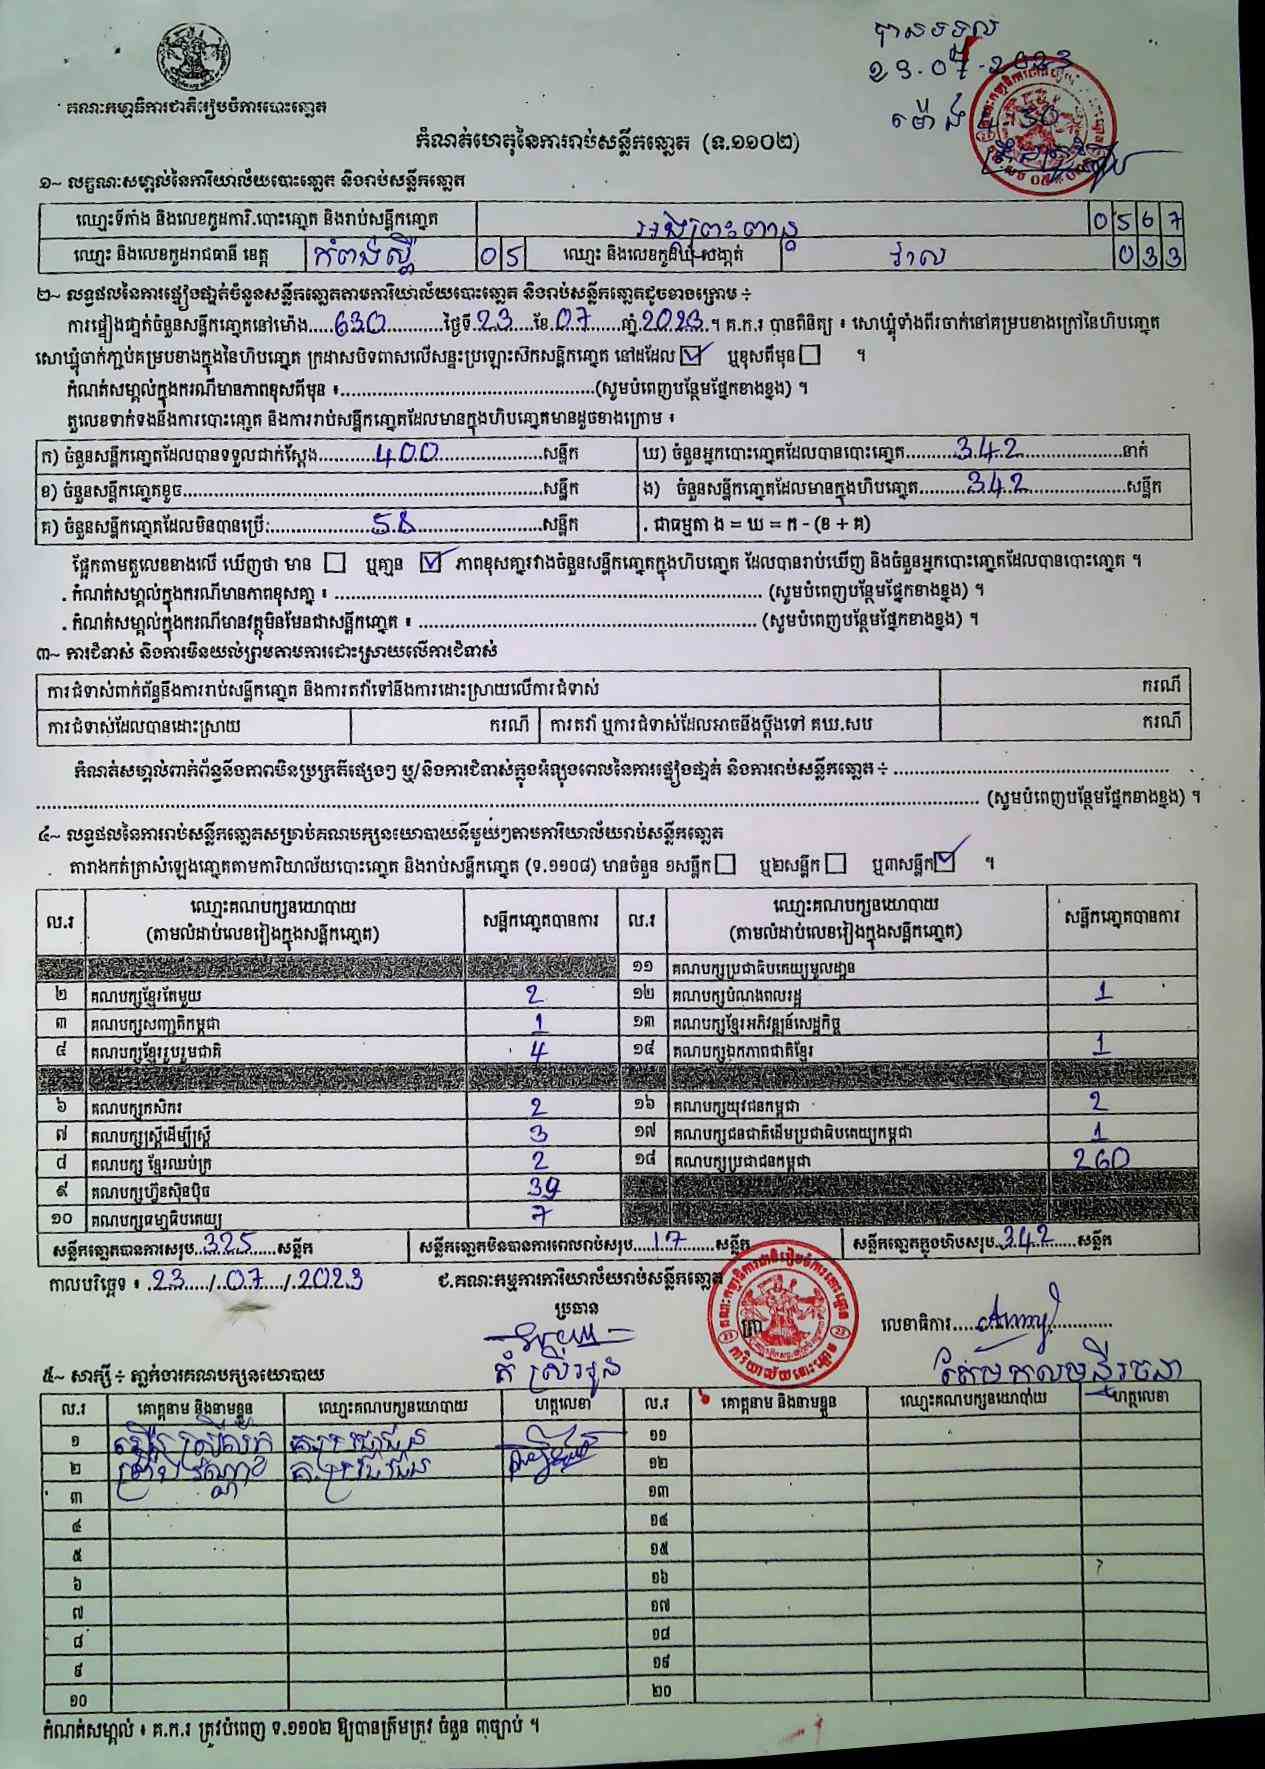 បានទទួល
23-07-2023
ម៉ោង
គណៈកម្មាធិការជាតិរៀបចំការបោះឆ្នោត
កំណត់ហេតុនៃការរាប់សន្លឹកឆ្នោត (ទ.១១០២)
១~ លក្ខណៈសម្គាល់នៃការិយាល័យបោះឆ្នោត និងរាប់សន្លឹកឆ្នោត
ឈ្មោះទីតាំង និងលេខកូដការិ.បោះឆ្នោត និងរាប់សន្លឹកឆ្នោត 0567
ឈ្មោះ និងលេខកូដរាជធានី ខេត្ត កំពង់ស្ពឺ 05 ឈ្មោះ និងលេខកូដឃុំ-សង្កាត់ វាល 033
២~ លទ្ធផលនៃការផ្ទៀងផ្ទាត់ចំនួនសន្លឹកឆ្នោតតាមការិយាល័យបោះឆ្នោត និងរាប់សន្លឹកឆ្នោតដូចខាងក្រោម ÷
ការផ្ទៀងផ្ទាត់ចំនួនសន្លឹកឆ្នោតនៅម៉ោង.....630..........ថ្ងៃទី.23....ខែ.07......ឆ្នាំ.2023.។ គ.ក.រ បានពិនិត្យ ៖ សោឃ្លុំទាំងពីរចាក់នៅគម្របខាងក្រៅនៃហិបឆ្នោត
សោឃ្លុំចាក់ភ្ជាប់គម្របខាងក្នុងនៃហិបឆ្នោត ក្រដាសបិទពាសលើសន្ទះប្រឡោះស៊កសន្លឹកឆ្នោត នៅដដែល ☑ ឬខុសពីមុន ☐ ។
កំណត់សម្គាល់ក្នុងករណីមានភាពខុសពីមុន ៖..........................................(សូមបំពេញបន្ថែមផ្នែកខាងខ្នង) ។
តួលេខទាក់ទងនឹងការបោះឆ្នោត និងការរាប់សន្លឹកឆ្នោតដែលមានក្នុងហិបឆ្នោតមានដូចខាងក្រោម ៖
ក) ចំនួនសន្លឹកឆ្នោតដែលបានទទួលជាក់ស្តែង..........400....................សន្លឹក ឃ) ចំនួនអ្នកបោះឆ្នោតដែលបានបោះឆ្នោត.........342....................នាក់
ខ) ចំនួនសន្លឹកឆ្នោតខូច............................................................សន្លឹក ង) ចំនួនសន្លឹកឆ្នោតដែលមានក្នុងហិបឆ្នោត.........342....................សន្លឹក
គ) ចំនួនសន្លឹកឆ្នោតដែលមិនបានប្រើ:.................58....................សន្លឹក . ជាធម្មតា ង = ឃ = ក - (ខ + គ)
ផ្អែកតាមតួលេខខាងលើ ឃើញថា មាន ☐ ឬគ្មាន ☑ ភាពខុសគ្នារវាងចំនួនសន្លឹកឆ្នោតក្នុងហិបឆ្នោត ដែលបានរាប់ឃើញ និងចំនួនអ្នកបោះឆ្នោតដែលបានបោះឆ្នោត ។
. កំណត់សម្គាល់ក្នុងករណីមានភាពខុសគ្នា ៖ ...................................................................... (សូមបំពេញបន្ថែមផ្នែកខាងខ្នង) ។
. កំណត់សម្គាល់ក្នុងករណីមានវត្ថុមិនមែនជាសន្លឹកឆ្នោត ៖ ........................................................ (សូមបំពេញបន្ថែមផ្នែកខាងខ្នង) ។
៣~ ការជំទាស់ និងការមិនយល់ព្រមតាមការដោះស្រាយលើការជំទាស់
ការជំទាស់ពាក់ព័ន្ធនឹងការរាប់សន្លឹកឆ្នោត និងការតវ៉ាទៅនឹងការដោះស្រាយលើការជំទាស់ ករណី
ការជំទាស់ដែលបានដោះស្រាយ ករណី ការតវ៉ា ឬការជំទាស់ដែលអាចនឹងប្តឹងទៅ គឃ.សប ករណី
កំណត់សម្គាល់ពាក់ព័ន្ធនឹងភាពមិនប្រក្រតីផ្សេងៗ ឬ/និងការជំទាស់ក្នុងអំឡុងពេលនៃការផ្ទៀងផ្ទាត់ និងការរាប់សន្លឹកឆ្នោត ÷ ..............................................
............................................................................................................ (សូមបំពេញបន្ថែមផ្នែកខាងខ្នង) ។
៤~ លទ្ធផលនៃការរាប់សន្លឹកឆ្នោតសម្រាប់គណបក្សនយោបាយនីមួយៗតាមការិយាល័យរាប់សន្លឹកឆ្នោត
តារាងកត់ត្រាសំឡេងឆ្នោតតាមការិយាល័យបោះឆ្នោត និងរាប់សន្លឹកឆ្នោត (ទ.១១០៨) មានចំនួន ១សន្លឹក ☐ ឬ២សន្លឹក ☐ ឬ៣សន្លឹក ☑ ។
ល.រ ឈ្មោះគណបក្សនយោបាយ សន្លឹកឆ្នោតបានការ ល.រ ឈ្មោះគណបក្សនយោបាយ សន្លឹកឆ្នោតបានការ
(តាមលំដាប់លេខរៀងក្នុងសន្លឹកឆ្នោត) (តាមលំដាប់លេខរៀងក្នុងសន្លឹកឆ្នោត)
១១ គណបក្សប្រជាធិបតេយ្យមូលដ្ឋាន
២ គណបក្សខ្មែរតែមួយ 2 ១២ គណបក្សបំណងពលរដ្ឋ 1
៣ គណបក្សសញ្ជាតិកម្ពុជា 1 ១៣ គណបក្សខ្មែរអភិវឌ្ឍន៍សេដ្ឋកិច្ច
៤ គណបក្សខ្មែររួបរួមជាតិ 4 ១៤ គណបក្សឯកភាពជាតិខ្មែរ 1
៦ គណបក្សកសិករ 2 ១៦ គណបក្សយុវជនកម្ពុជា 2
៧ គណបក្សស្ត្រីដើម្បីស្ត្រី 3 ១៧ គណបក្សជនជាតិដើមប្រជាធិបតេយ្យកម្ពុជា 1
៨ គណបក្ស ខ្មែរឈប់ក្រ 2 ១៨ គណបក្សប្រជាជនកម្ពុជា 260
៩ គណបក្សហ៊្វុនស៊ិនប៉ិច 39
១០ គណបក្សធម្មាធិបតេយ្យ 7
សន្លឹកឆ្នោតបានការសរុប..325......សន្លឹក សន្លឹកឆ្នោតមិនបានការពេលរាប់សរុប....17.......សន្លឹក សន្លឹកឆ្នោតក្នុងហិបសរុប..342......សន្លឹក
កាលបរិច្ឆេទ ៖ .23...../.07..../.2023 ជ.គណៈកម្មការការិយាល័យរាប់សន្លឹកឆ្នោត
ប្រធាន
លេខាធិការ
៥~ សាក្សី ÷ ភ្នាក់ងារគណបក្សនយោបាយ
ល.រ គោត្តនាម និងនាមខ្លួន ឈ្មោះគណបក្សនយោបាយ ហត្ថលេខា ល.រ គោត្តនាម និងនាមខ្លួន ឈ្មោះគណបក្សនយោបាយ ហត្ថលេខា
១ ១១
២ ១២
៣ ១៣
៤ ១៤
៥ ១៥
៦ ១៦
៧ ១៧
៨ ១៨
៩ ១៩
១០ ២០
កំណត់សម្គាល់ ៖ គ.ក.រ ត្រូវបំពេញ ទ.១១០២ ឱ្យបានត្រឹមត្រូវ ចំនួន ៣ច្បាប់ ។